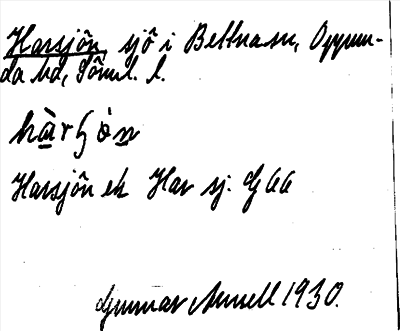 Harsjön, sjö i Bettnasn, Oppun-
da hd, Söml. l.
hàrʃòn
Harsjön ek Har sj. G 66
Gunnar Nunell 1930.